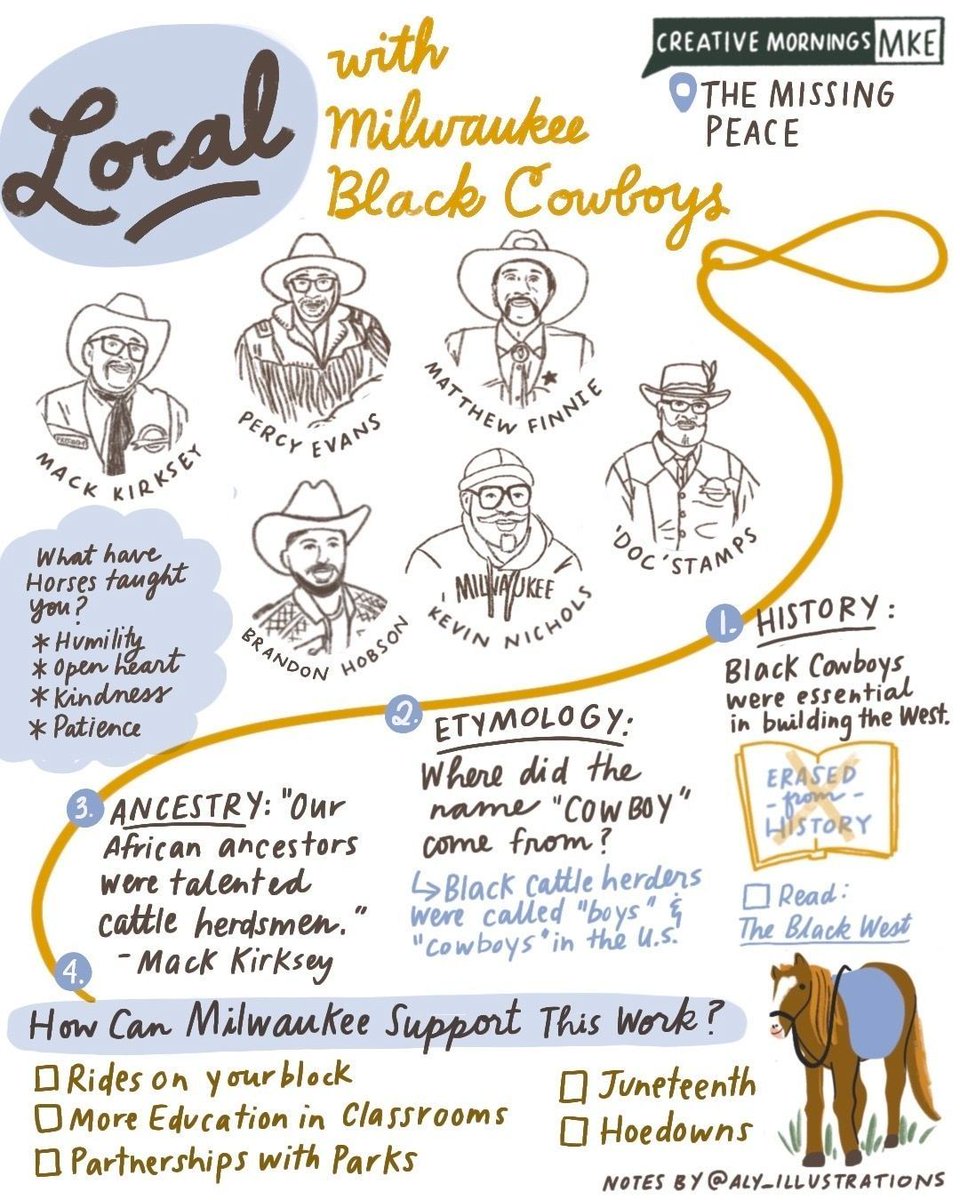 Local
with
Milwaukee
Black Cowboys
CREATIVE MORNINGS MKE
THE MISSING
PEACE
MACK KIRKSEY
PERCY EVANS
MATTHEW FINNIE
'DOC' STAMPS
BRANDON HOBSON
MILWAUKEE
KEVIN NICHOLS
What have
Horses taught
you?
* Humility
* Open heart
* Kindness
* Patience
1. HISTORY:
Black Cowboys
were essential
in building the West.
ERASED
- from -
HISTORY
Read:
The Black West
2. ETYMOLOGY:
Where did the
name "COWBOY"
come from?
↳ Black cattle herders
were called "boys" &
"cowboys" in the U.S.
3. ANCESTRY: "Our
African ancestors
were talented
cattle herdsmen."
- Mack Kirksey
4.
How Can Milwaukee Support This Work?
Rides on your block
More Education in Classrooms
Partnerships with Parks
Juneteenth
Hoedowns
NOTES BY @ALY_ILLUSTRATIONS